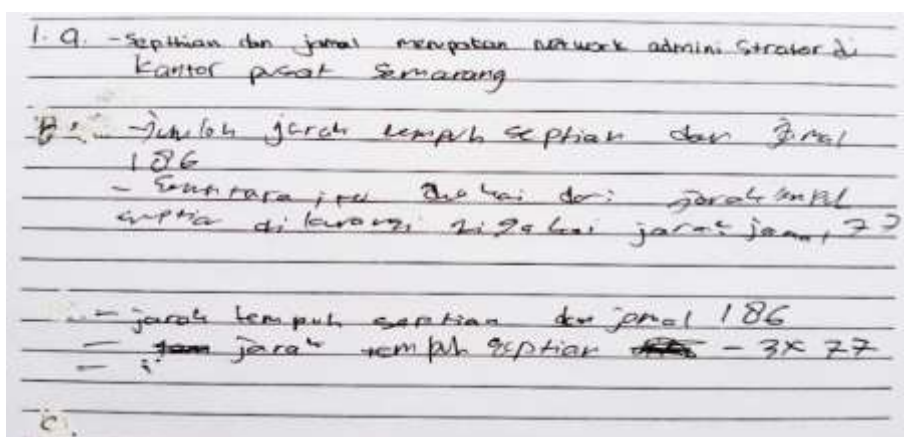 1. a. - Septhian dan jamal merupakan network administrator di
kantor pusat Semarang
- Jumlah jarak tempuh septian dan Jmal
186
- Sementara itu dua kai dari jarak tmpuh
septia di kurangi tiga kai jarak jamal 77
- jarak tempuh septian dan jamal 186
- jarak tempuh septian - 3x 77
-
c.